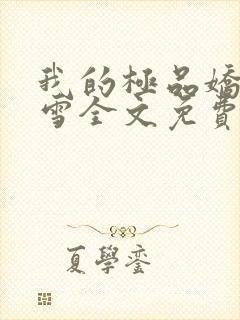 我的極品嬌
雪全文免費
夏學鑾